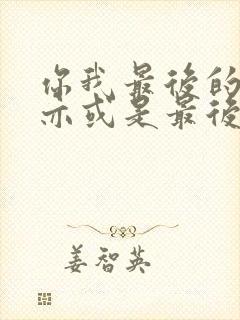 你我最後的
亦或是最後
姜智英